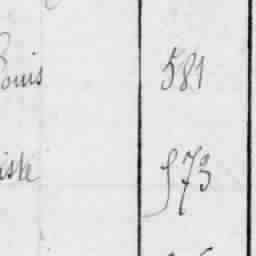 ouis 581
iste 573